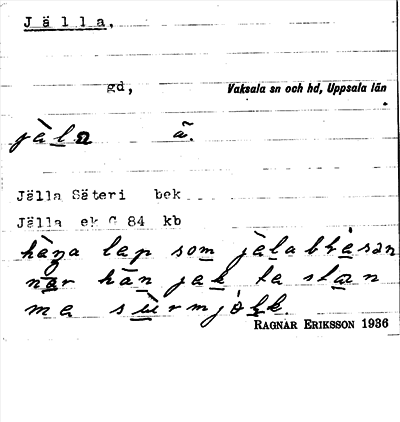 Jälla,
gd, Vaksala sn och hd, Uppsala län
jàla ã.
Jälla Säteri bek
Jälla ek G 84 kb
hàna lap som jàlabràsan
nar hān jak ta stan
ma sùrmjòlk.
RAGNAR ERIKSSON 1936